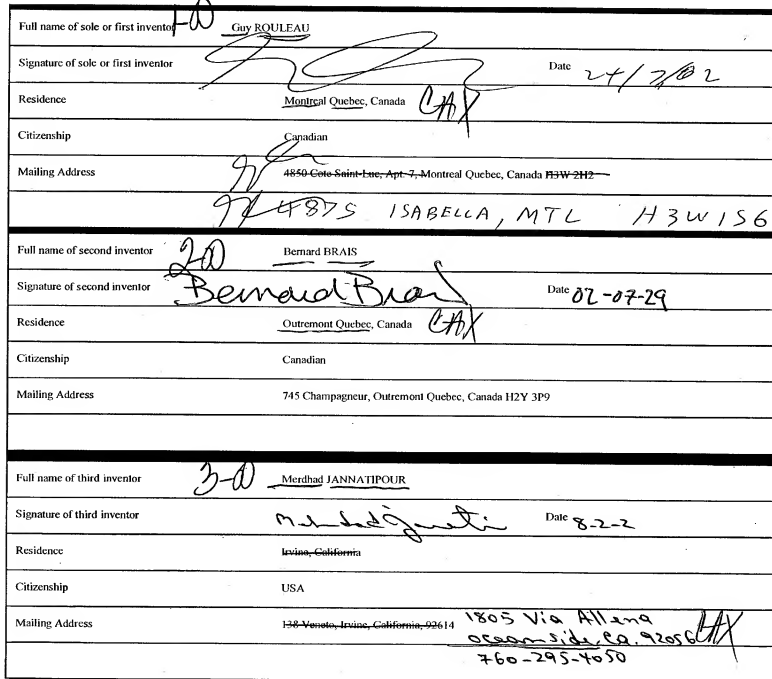 Full name of sole or first inventor 1-00 Guy ROULEAU
Signature of sole or first inventor Date 24/7/02
Residence Montreal Quebec, Canada CAX
Citizenship Canadian
Mailing Address 4850 Cote Saint-Luc, Apt. 7, Montreal Quebec, Canada H3W 2H2
4875 ISABELLA, MTL H3W1S6
Full name of second inventor 2-00 Bernard BRAIS
Signature of second inventor Bernard Brais Date 02-07-29
Residence Outremont Quebec, Canada CAX
Citizenship Canadian
Mailing Address 745 Champagneur, Outremont Quebec, Canada H2Y 3P9
Full name of third inventor 3-00 Merdhad JANNATIPOUR
Signature of third inventor Date 8-2-2
Residence Irvine, California
Citizenship USA
Mailing Address 138 Veneto, Irvine, California, 92614 1805 Via Allena
oceanside, Ca. 92056 CAX
760-295-4050